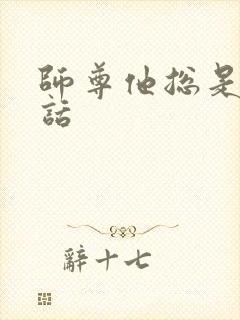 師尊他総是
話
辭十七